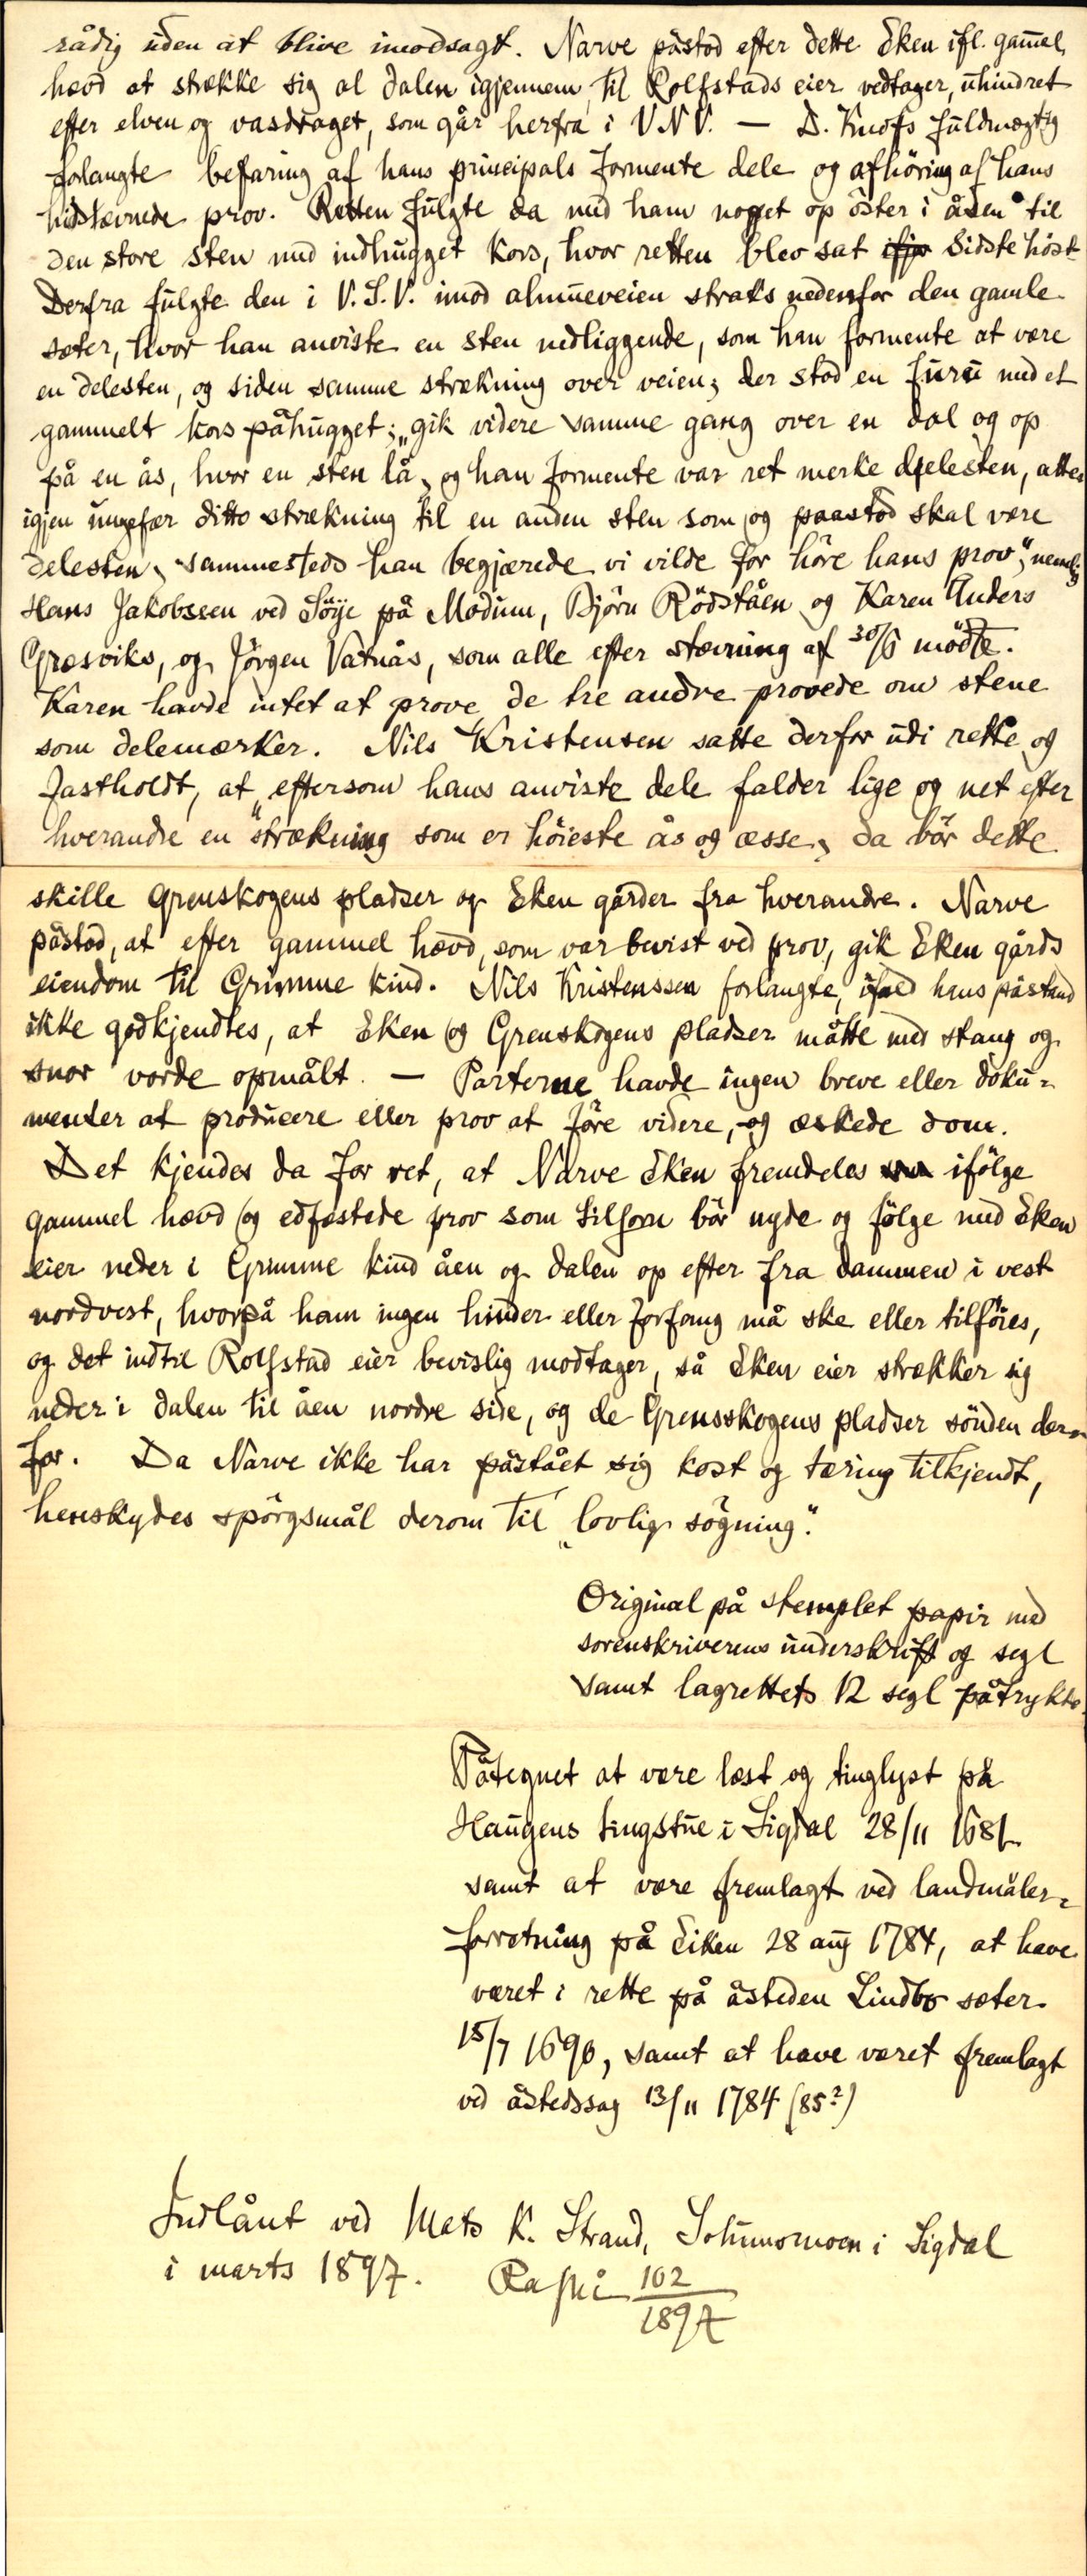 rådig uden at blive imodsagt. Narve påstod efter dette Eken ifl. gam̄el
hævd at strække sig al dalen igjennem, til Rolfstads eier vedtager, uhindret
efter elven og vasdraget, som går herfra i V N V. — D. Knofs fuldmægtig
forlangte befaring af hans principals formente dele og afhöring af hans
hidstævnede prov. Retten fulgte da med ham noget op öster i åsen til
den store sten med indhugget kors, hvor retten blev sat sidste höst.
Derfra fulgte den i V. S. V. imod almueveien straks nedenfor den gamle
sæter, hvor han anviste en sten nedliggende, som han formente at være
en delesten, og siden samme strækning over veien; der stod en furu med et
gammelt kors påhugget; „gik videre samme gang over en dal og op
på en ås, hvor en sten lå, og han formente var ret merke djelesten, atter
igjen ungefær ditto strækning til en anden sten som og paastod skal være
delesten, sammesteds han begjærede vi vilde for höre hans prov", nemlig
Hans Jakobssen ved Söije på Modum, Björn Rödståen og Karen Anders
Græsviks, og Jörgen Vatnås, som alle efter stævning af 30/6 mödte.
Karen havde intet at prove, de tre andre provede om stene
som delemærker. Nils Kristensen satte derfor udi rette og
fastholdt, at „eftersom hans anviste dele falder lige og net efter
hverandre en strækning som er höieste ås og æsse, da bör dette
skille Grenskogens pladser og Eken gårder fra hverandre. Narve
påstod, at efter gammel hævd, som var bevist ved prov, gik Eken gårds
eiendom til Grimme kind. Nils Kristenssen forlangte, ifald hans påstand
ikke godkjendtes, at Eken og Grenskogens pladser måtte med stang og
snor vorde opmålt. — Parterne havde ingen breve eller doku=
menter at producere eller prov at före videre, og æskede dom.
Det kjendes da for ret, at Narve Eken fremdeles ifölge
gammel hævd og edfæstede prov som tilforn bör nyde og fölge med Eken
eier neder i Grimme kind åen og dalen op efter fra dammen i vest
nordvest, hvorpå ham ingen hinder eller forfang må ske eller tilföies,
og det indtil Rolfstad eier bevislig modtager, så Eken eier strækker sig
neder i dalen til åen nordre side, og de Grensskogens pladser sönden der=
for. Da Narve ikke har påstået sig kost og tæring tilkjendt,
henskydes spörgsmål derom til „lovlig sögning".
Original på stemplet papir med
sorenskriverens underskrift og segl
samt lagrettets 12 segl påtrykte.
Påtegnet at være læst og tinglyst på
Haugens tingstue i Sigdal 28/11 1681
samt at være fremlagt ved landmåler=
forretning på Eiken 28 aug 1784, at have
været i rette på åsteden Lindbo sæter
15/7 1690, samt at have været fremlagt
ved åstedssag 13/11 1784 (85?)
Indlånt ved Mats K. Strand, Solumsmoen i Sigdal
i marts 1897. 102
1897